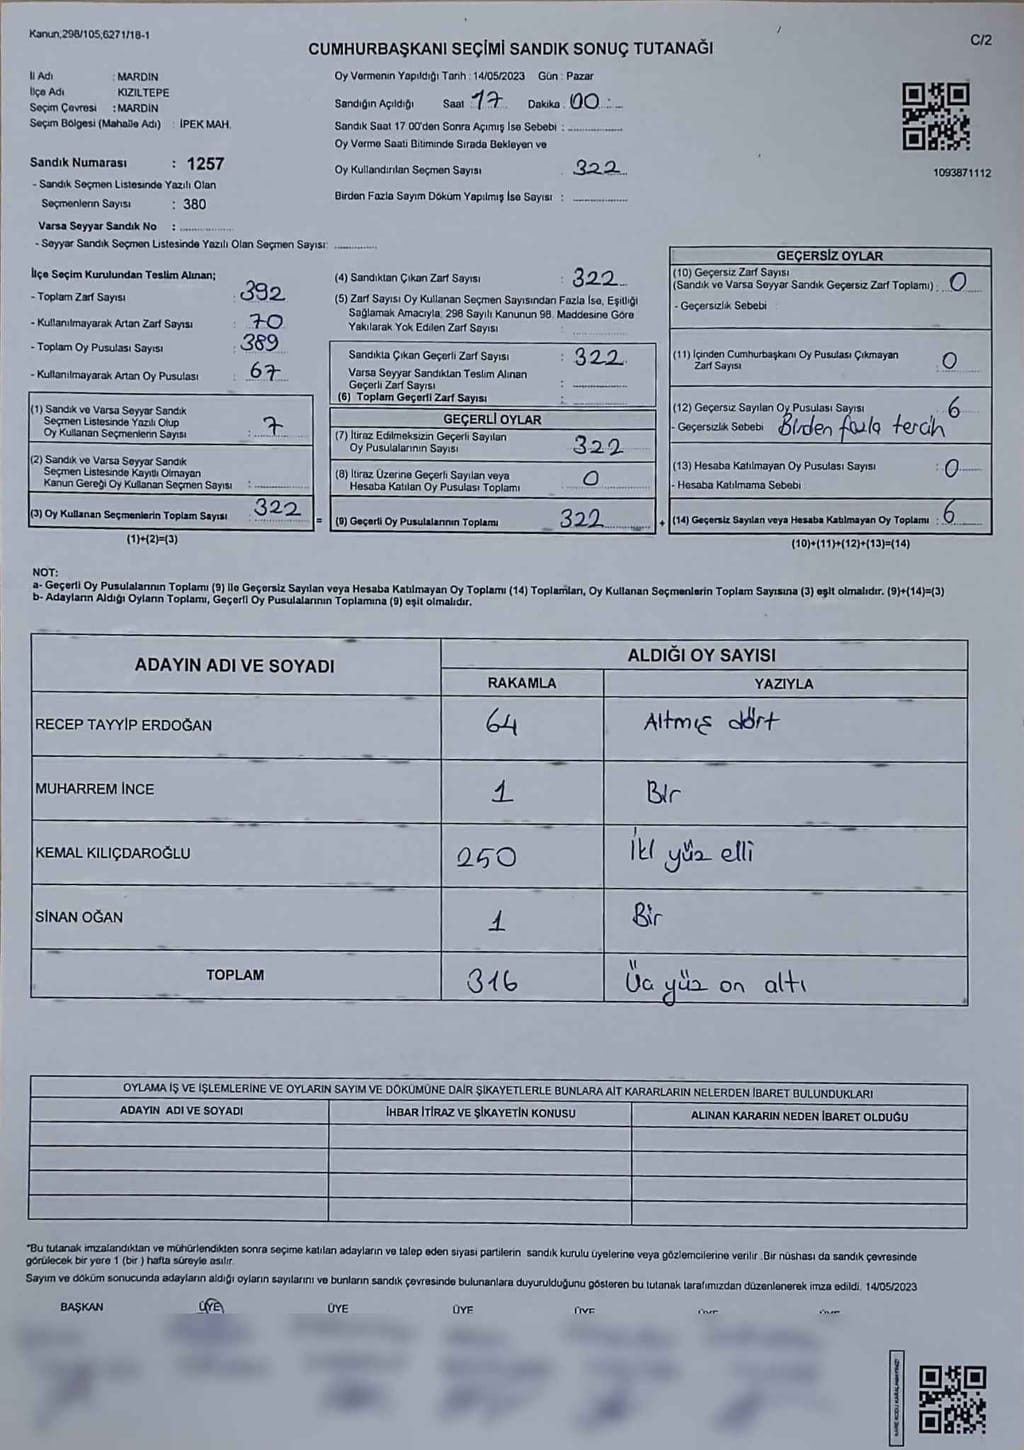 Kanun,298/105,6271/18-1
C/2
CUMHURBAŞKANI SEÇİMİ SANDIK SONUÇ TUTANAĞI
İl Adı : MARDİN
İlçe Adı KIZILTEPE
Seçim Çevresi : MARDİN
Seçim Bölgesi (Mahalle Adı) : İPEK MAH.
Sandık Numarası : 1257
- Sandık Seçmen Listesinde Yazılı Olan
Seçmenlerin Sayısı : 380
Varsa Seyyar Sandık No :
- Seyyar Sandık Seçmen Listesinde Yazılı Olan Seçmen Sayısı:
Oy Vermenin Yapıldığı Tarih : 14/05/2023 Gün : Pazar
Sandığın Açıldığı Saat 17 Dakika 00
Sandık Saat 17 00'den Sonra Açımış İse Sebebi :
Oy Verme Saati Bitiminde Sırada Bekleyen ve
Oy Kullandırılan Seçmen Sayısı 322
Birden Fazla Sayım Döküm Yapılmış İse Sayısı :
1093871112
İlçe Seçim Kurulundan Teslim Alınan;
- Toplam Zarf Sayısı : 392
- Kullanılmayarak Artan Zarf Sayısı : 70
- Toplam Oy Pusulası Sayısı : 389
- Kullanılmayarak Artan Oy Pusulası : 67
(1) Sandık ve Varsa Seyyar Sandık
Seçmen Listesinde Yazılı Olup
Oy Kullanan Seçmenlerin Sayısı : 7
(2) Sandık ve Varsa Seyyar Sandık
Seçmen Listesinde Kayıtlı Olmayan
Kanun Gereği Oy Kullanan Seçmen Sayısı :
(3) Oy Kullanan Seçmenlerin Toplam Sayısı 322
(1)+(2)=(3)
=
(4) Sandıktan Çıkan Zarf Sayısı : 322
(5) Zarf Sayısı Oy Kullanan Seçmen Sayısından Fazla İse, Eşitliği
Sağlamak Amacıyla, 298 Sayılı Kanunun 98. Maddesine Göre
Yakılarak Yok Edilen Zarf Sayısı :
Sandıkta Çıkan Geçerli Zarf Sayısı : 322
Varsa Seyyar Sandıktan Teslim Alınan
Geçerli Zarf Sayısı :
(6) Toplam Geçerli Zarf Sayısı :
GEÇERLİ OYLAR
(7) İtiraz Edilmeksizin Geçerli Sayılan
Oy Pusulalarının Sayısı 322
(8) İtiraz Üzerine Geçerli Sayılan veya
Hesaba Katılan Oy Pusulası Toplamı 0
(9) Geçerli Oy Pusulalarının Toplamı 322
+
GEÇERSİZ OYLAR
(10) Geçersiz Zarf Sayısı
(Sandık ve Varsa Seyyar Sandık Geçersiz Zarf Toplamı) 0
- Geçersizlik Sebebi
(11) İçinden Cumhurbaşkanı Oy Pusulası Çıkmayan
Zarf Sayısı 0
(12) Geçersiz Sayılan Oy Pusulası Sayısı 6
- Geçersizlik Sebebi Birden fazla tercih
(13) Hesaba Katılmayan Oy Pusulası Sayısı : 0
- Hesaba Katılmama Sebebi
(14) Geçersiz Sayılan veya Hesaba Katılmayan Oy Toplamı : 6
(10)+(11)+(12)+(13)=(14)
NOT:
a- Geçerli Oy Pusulalarının Toplamı (9) ile Geçersiz Sayılan veya Hesaba Katılmayan Oy Toplamı (14) Toplamları, Oy Kullanan Seçmenlerin Toplam Sayısına (3) eşit olmalıdır. (9)+(14)=(3)
b- Adayların Aldığı Oyların Toplamı, Geçerli Oy Pusulalarının Toplamına (9) eşit olmalıdır.
ADAYIN ADI VE SOYADI
ALDIĞI OY SAYISI
RAKAMLA YAZIYLA
RECEP TAYYİP ERDOĞAN 64 Altmış dört
MUHARREM İNCE 1 Bir
KEMAL KILIÇDAROĞLU 250 İki yüz elli
SİNAN OĞAN 1 Bir
TOPLAM 316 Üç yüz on altı
OYLAMA İŞ VE İŞLEMLERİNE VE OYLARIN SAYIM VE DÖKÜMÜNE DAİR ŞİKAYETLERLE BUNLARA AİT KARARLARIN NELERDEN İBARET BULUNDUKLARI
ADAYIN ADI VE SOYADI İHBAR İTİRAZ VE ŞİKAYETİN KONUSU ALINAN KARARIN NEDEN İBARET OLDUĞU
"Bu tutanak imzalandıktan ve mühürlendikten sonra seçime katılan adayların ve talep eden siyasi partilerin sandık kurulu üyelerine veya gözlemcilerine verilir .Bir nüshası da sandık çevresinde
görülecek bir yere 1 (bir ) hafta süreyle asılır.
Sayım ve döküm sonucunda adayların aldığı oyların sayılarını ve bunların sandık çevresinde bulunanlara duyurulduğunu gösteren bu tutanak tarafımızdan düzenlenerek imza edildi. 14/05/2023
BAŞKAN ÜYE ÜYE ÜYE ÜYE